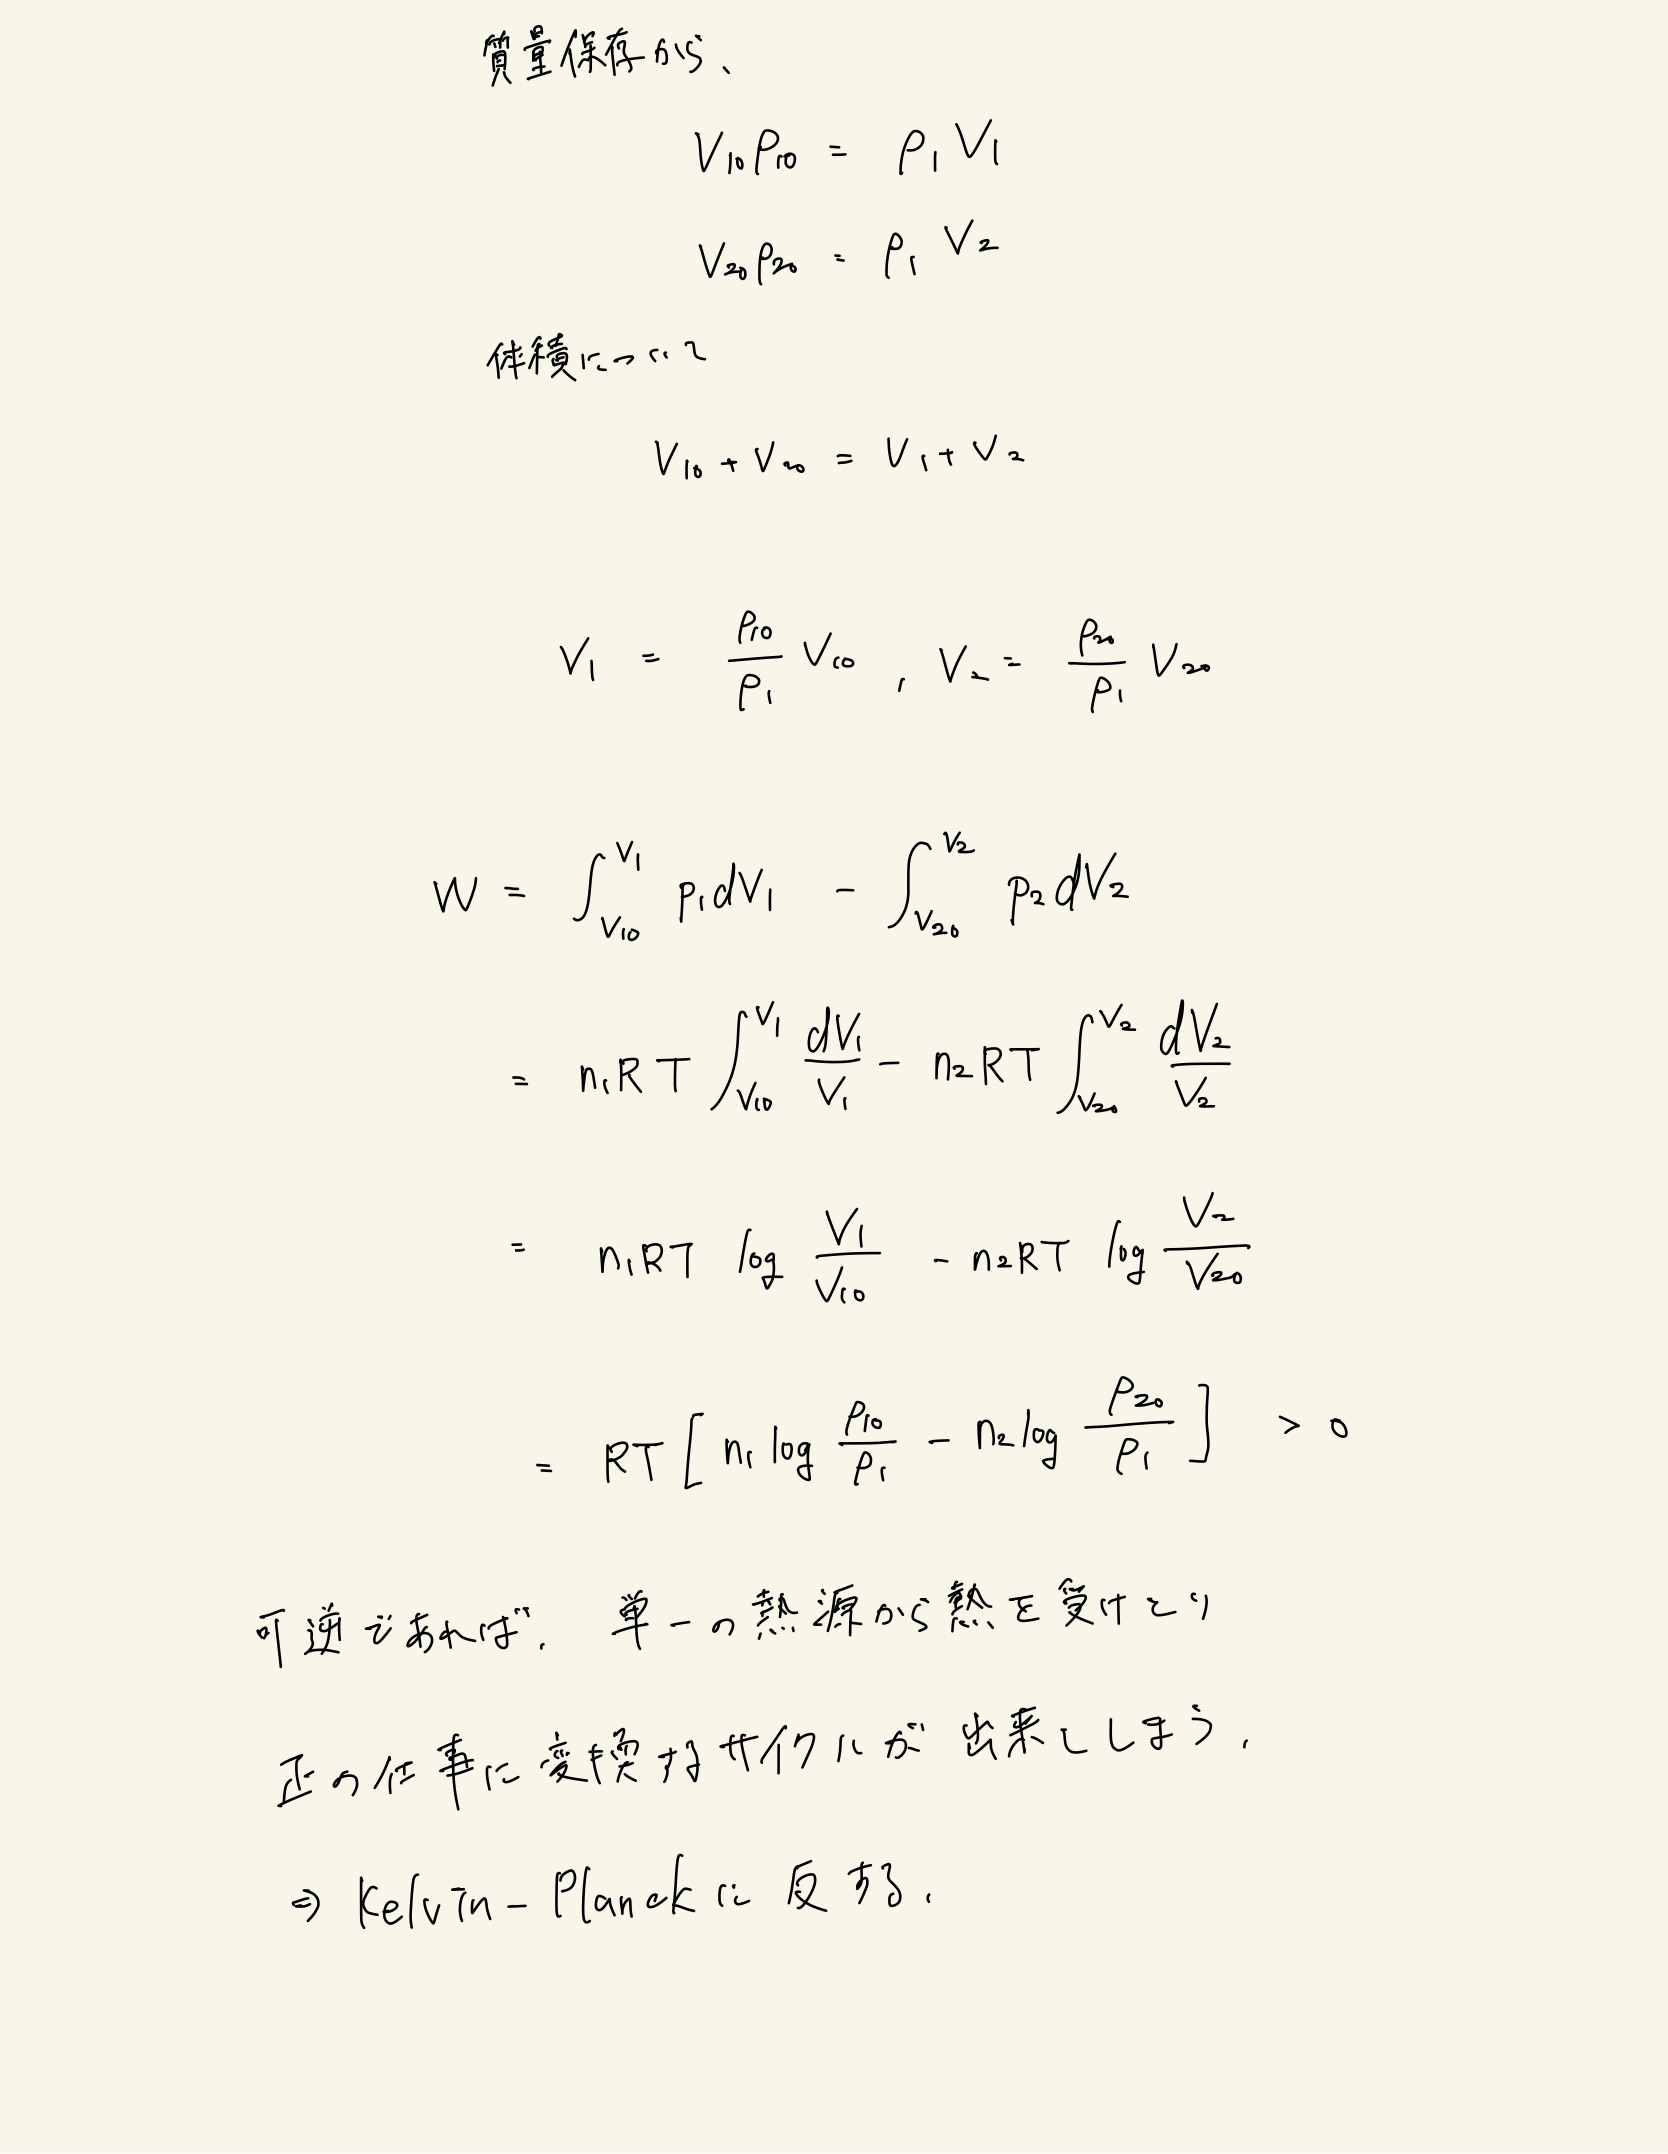 質量保存から、
V₁₀ρ₁₀ = ρ₁V₁
V₂₀ρ₂₀ = ρ₁V₂
体積について
V₁₀ + V₂₀ = V₁ + V₂
V₁ = ρ₁₀/ρ₁ V₁₀ , V₂ = ρ₂₀/ρ₁ V₂₀
W = ∫_{V₁₀}^{V₁} p₁dV₁ - ∫_{V₂₀}^{V₂} p₂dV₂
= n₁RT ∫_{V₁₀}^{V₁} dV₁/V₁ - n₂RT ∫_{V₂₀}^{V₂} dV₂/V₂
= n₁RT log V₁/V₁₀ - n₂RT log V₂/V₂₀
= RT [ n₁ log ρ₁₀/ρ₁ - n₂ log ρ₂₀/ρ₁ ] > 0
可逆であれば, 単一の熱源から熱を受けとり
正の仕事に変換するサイクルが出来てしまう,
⇒ Kelvin-Planckに反する,